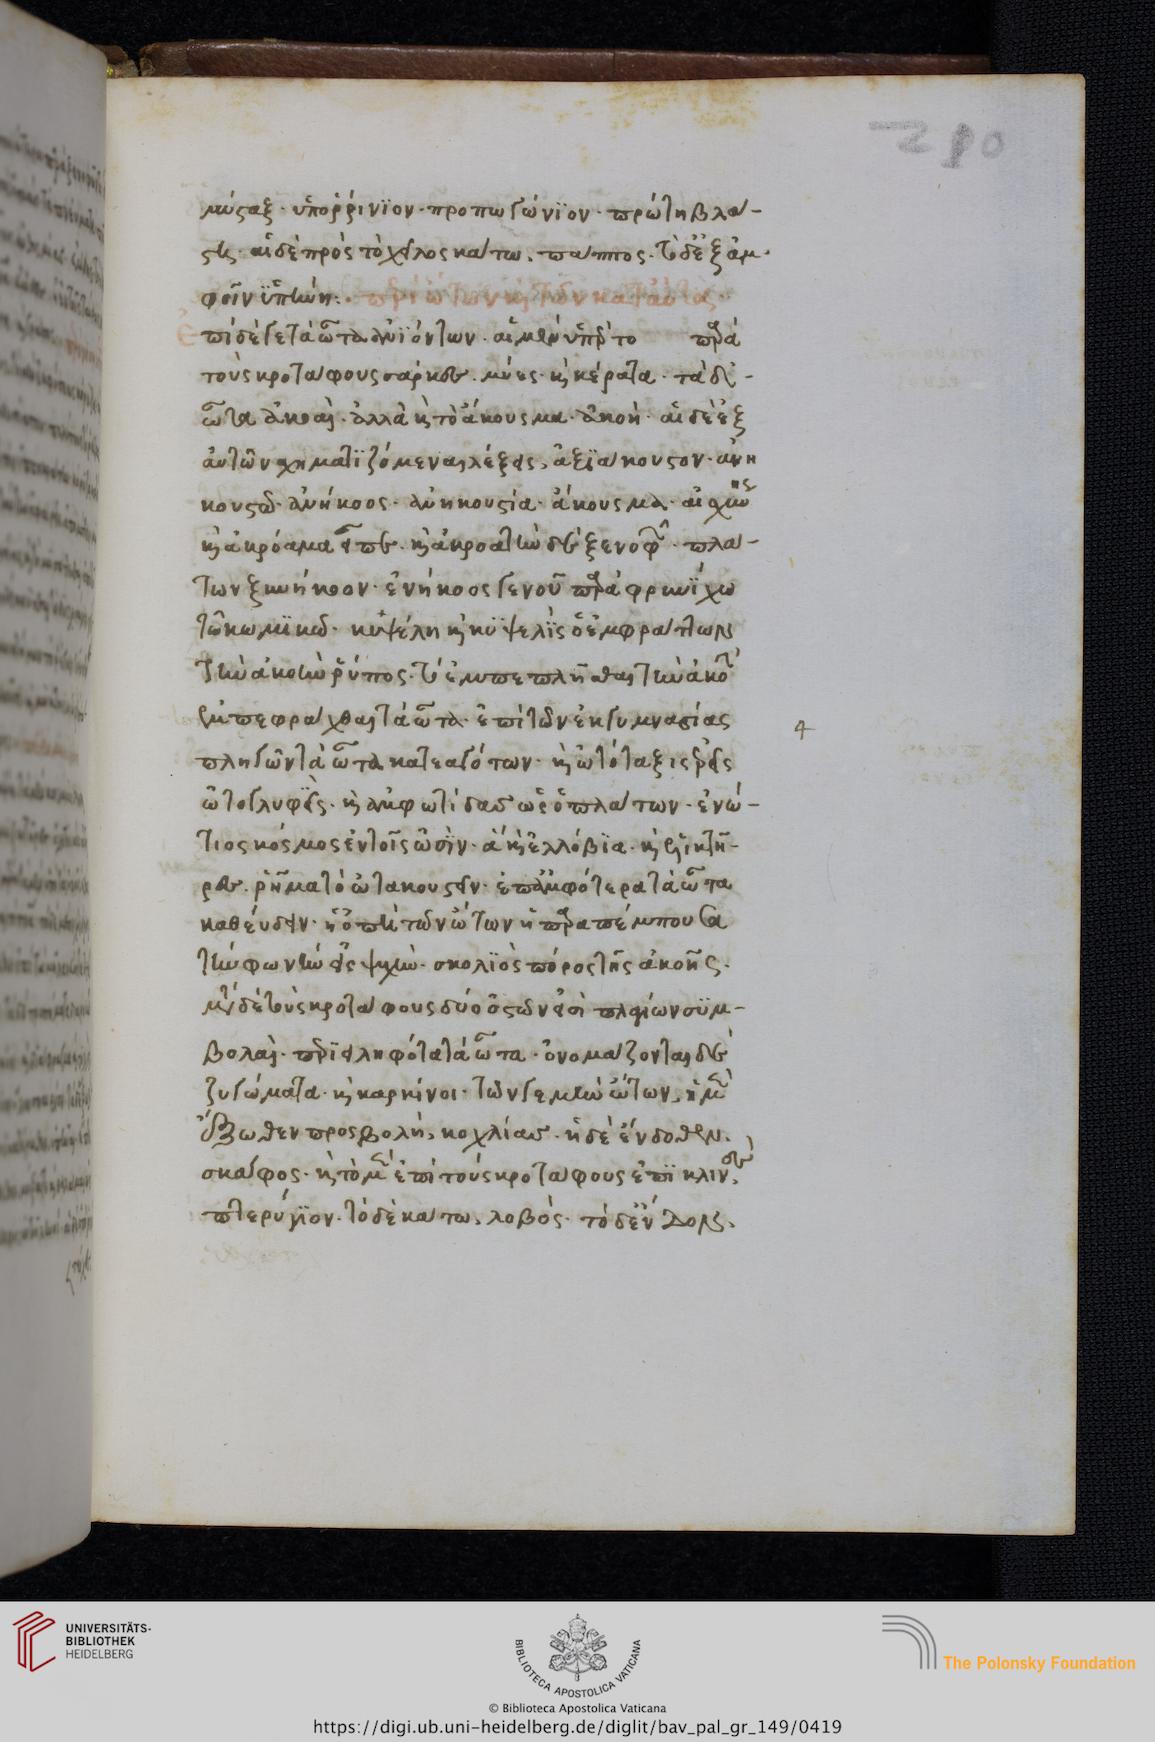 210
μύσταξ· ὑπορρίνιον· προπωγώνιον· πρώτη βλά-
στη· αἱ δὲ πρὸς τὸ χεῖλος κάτω, πάππος· τὸ δὲ ἐξ ἀμ-
φοῖν ὑπήνη· περὶ ὤτων καὶ τῶν κατ' αὐτάς·
Ἐπὶ δέ γε τὰ ὦτα ἀνιόντων· αἱ μὲν ὑπὲρ το παρὰ
τοὺς κροτάφους σάρκες· μύες· καὶ κέρατα· τὰ δὲ
ὦτα ἀκοαί· ἀλλὰ καὶ τὸ ἄκουσμα· ἀκοή· αἱ δὲ ἐξ
αὐτῶν σχηματιζόμεναι λέξεις, ἀξιάκουστον· ἀνη
κουστεῖν· ἀνήκοος· ἀνηκουστία· ἄκουσμα· αἰσχίνης
καὶ ἀκρόαμα εἶπε· καὶ ἀκροατὴν δὲ ξενοφῶν· πλά-
των ξυνήκοον· ἐνήκοος γενοῦ παρὰ φρυνίχω
τῶ κωμικῶ· κυψέλη καὶ κυψελὶς ὁ ἐμφράττων
τὴν ἀκοὴν ῥύπος· τὸ ἐμπεπλῆσθαι τὴν ἀκοήν
ἐμπεφράχθαι τὰ ὦτα· ἐπὶ τῶν ἐκ γυμνασίας
πληγῶν τὰ ὦτα κατεαγότων· καὶ ὠτόταξις ἐρεῖς
ὠτογλυφίς· καὶ ἀμφωτίδας ὡς ὁ πλάτων· ἐνώ-
τιος κόσμος ἐν τοῖς ὠσίν· ἃ καὶ ἐλλόβια· καὶ ἑλικτῆ-
ρες· ῥῆμα τὸ ὠτακουστεῖν· ἐπ' ἀμφότερα τὰ ὦτα
καθεύδειν· ἡ ὀπὴ τῶν ὤτων ἡ παραπέμπουσα
τὴν φωνὴν εἰς ψυχὴν· σκολιὸς πόρος τῆς ἀκοῆς·
μετὰ δὲ τοὺς κροτάφους δύο ὀστῶν εἰσὶ πλαγίων συμ-
βολαί· περιειληφότα τὰ ὦτα· ὀνομάζονται δὲ
ζυγώματα· καὶ καρκίνοι· τῶν γε μὴν ὤτων, ἡ μὲν
ἔξωθεν προσβολή, κοχλίας· ἡ δὲ ἔνδοθεν,
σκάφος· καὶ τὸ μὲν ἐπὶ τοὺς κροτάφους ἐπικλινὲς,
πτερύγιον· τὸ δὲ κάτω, λοβός· τὸ δὲ ἔνδον,
4
UNIVERSITÄTS-
BIBLIOTHEK
HEIDELBERG
BIBLIOTECA APOSTOLICA VATICANA
The Polonsky Foundation
© Biblioteca Apostolica Vaticana
https://digi.ub.uni-heidelberg.de/diglit/bav_pal_gr_149/0419